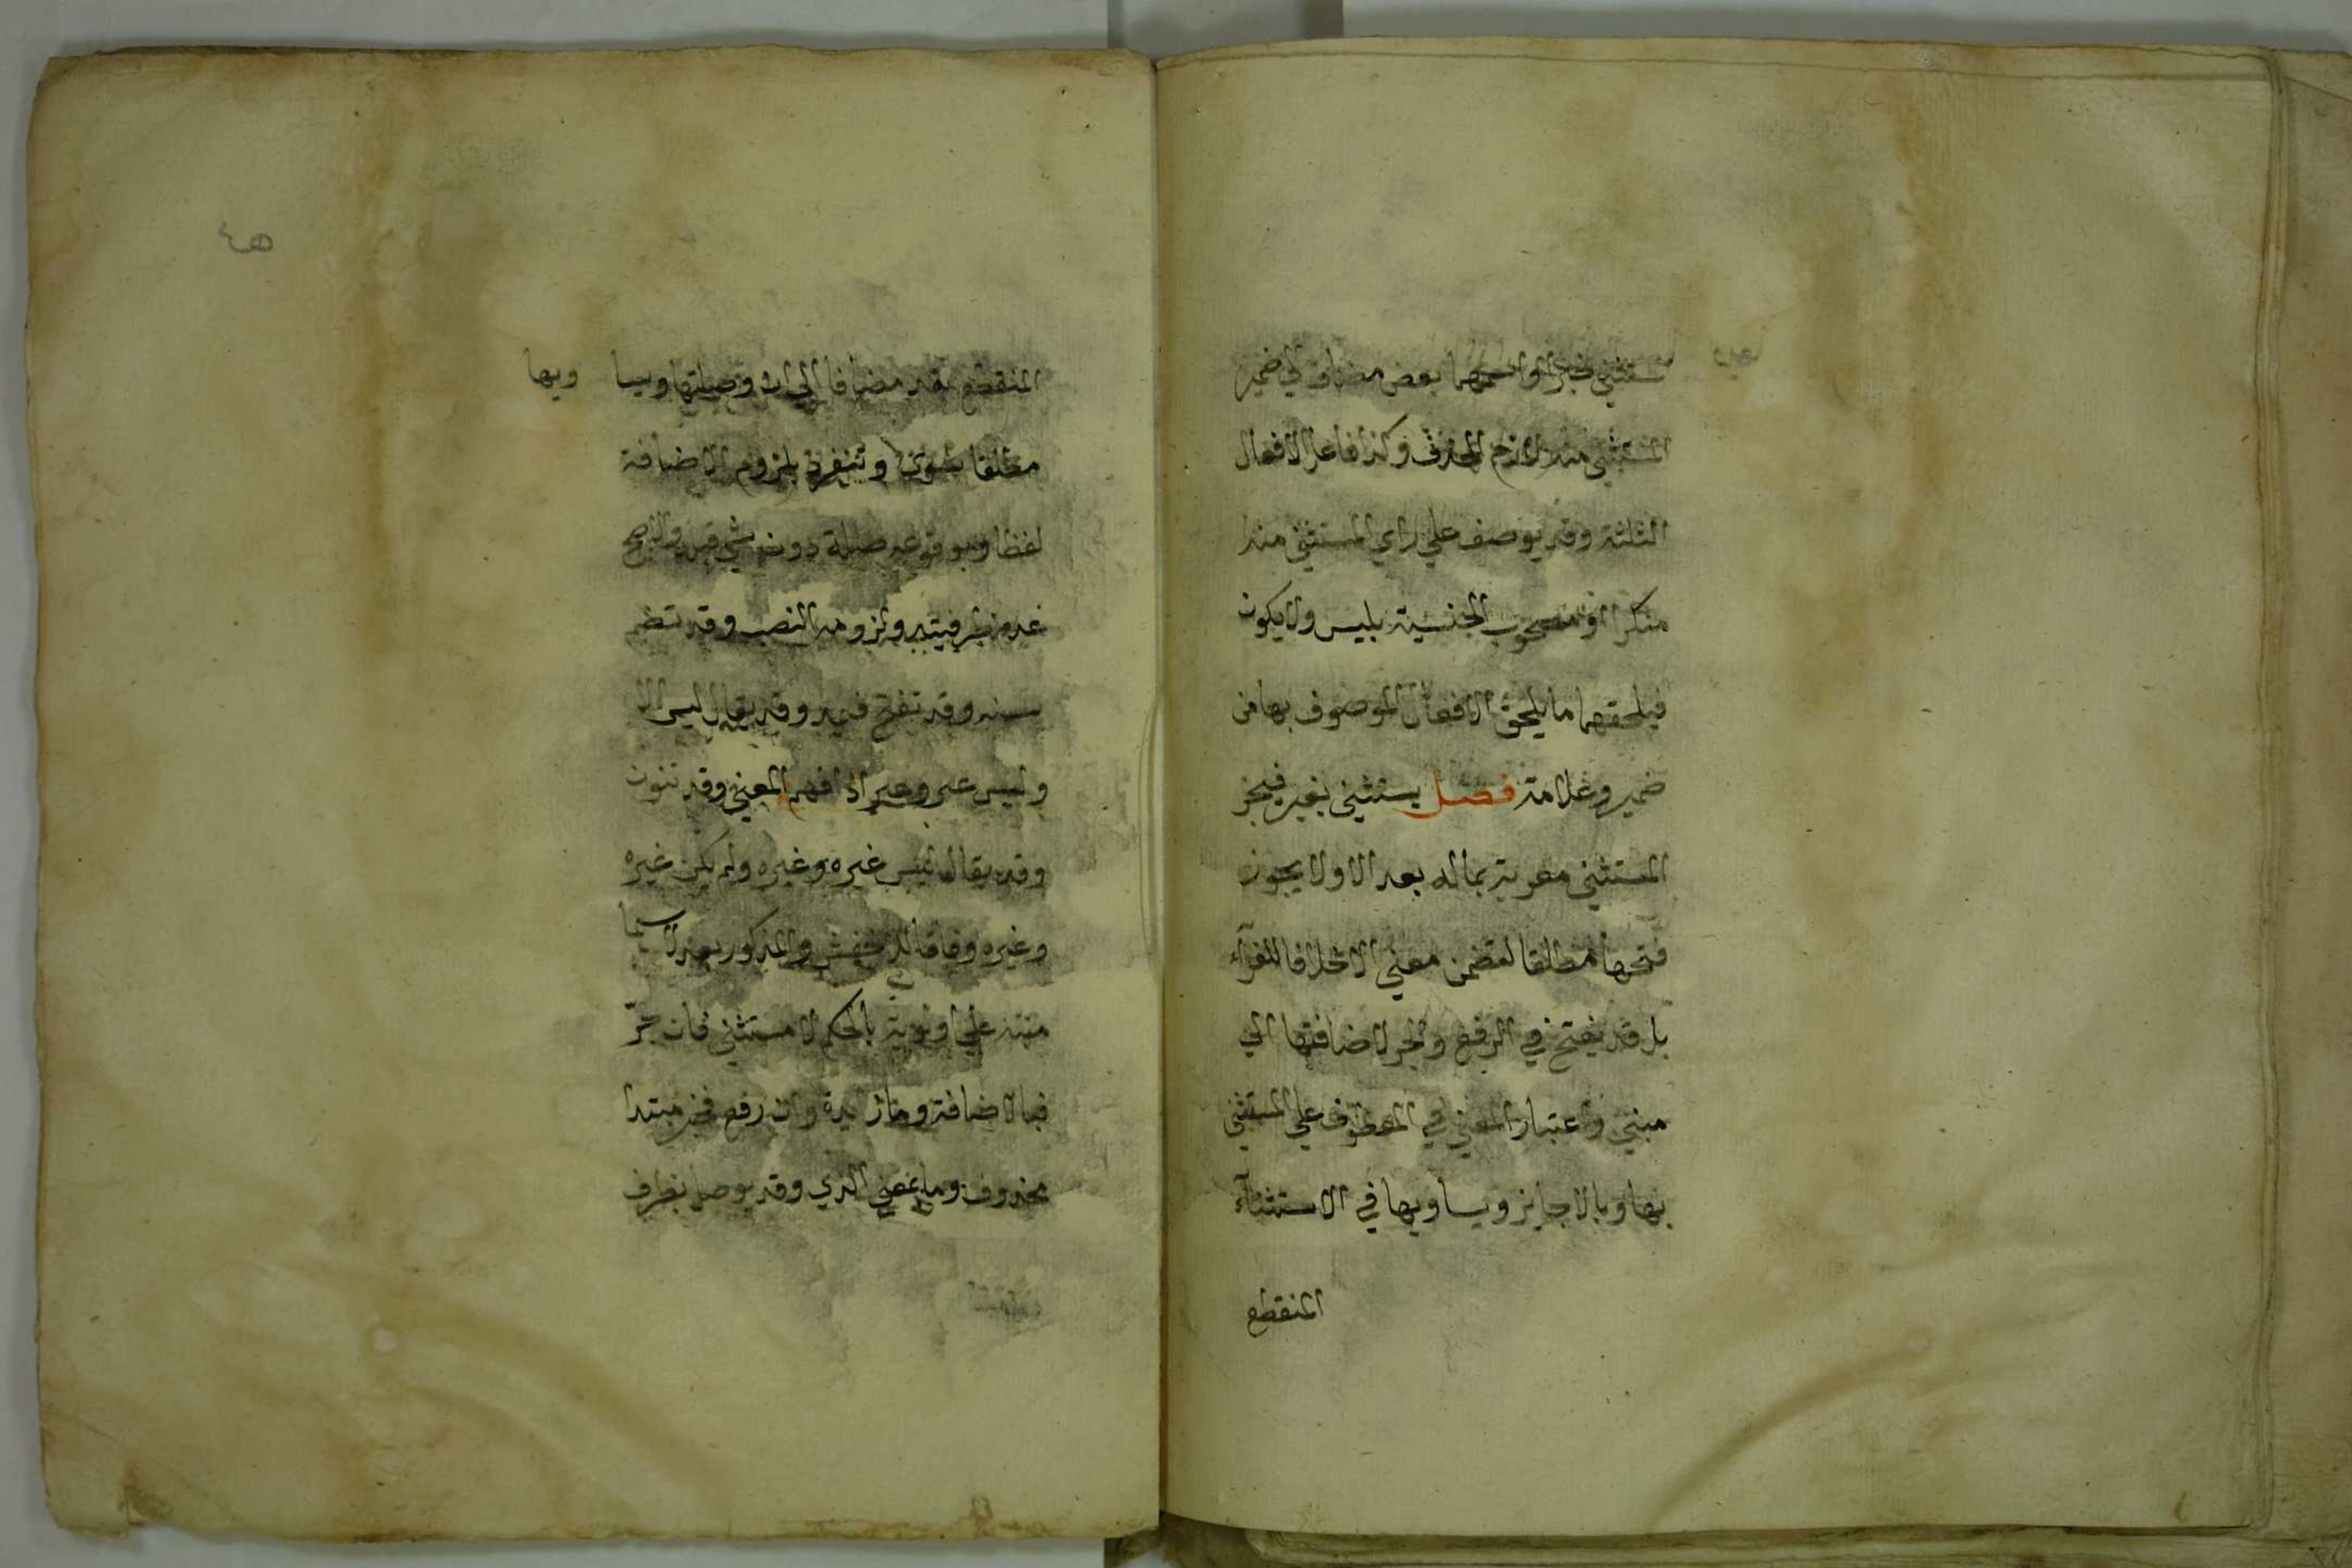 مستثني خبرا واسمهما بعض مضاف الي ضمير
المستثني منه لازم الحذف وكذا فاعل الافعال
الثلثة وقد يوصف علي راي المستثني منه
منكرا او مصحوب الجنسية بليس ولا يكون
فيلحقهما ما يلحق الافعال الموصوف بها من
ضمير وعلامة فصل يستثني بغير فيجر
المستثني معربة بماله بعد الا ولا يجوز
فتحها مطلقا لتضمن معني الا خلافا للفرآء
بل قد يفتح في الرفع والجر لاضافتها الي
مبني واعتبار المعني في المعطوف علي المستثني
بها وبالا جايز ويساويها في الاستثنآء
المنقطع
٤٥
المنقطع بيد مضافا الي ان وصلتها ويسا ويها
مطلقا سوي وتنفرد بلزوم الاضافة
لفظا وبوقوعه صلة دون شي قبله والاصح
عدم ظرفيته ولزومه النصب وقد تضم
سينه وقد تفتح فيمد وقد يقال ليس الا
وليس غير وغير اذا فهم المعني وقد تنون
وقد يقال ليس غيره وغيره ولم يكن غيره
وغيره وفاقا للاخفش والمذكور بعد لا سيما
منبه علي اولويته بالحكم لا مستثني فان جرّ
فبالاضافة وما زايدة وان رفع فخبر مبتدا
محذوف وما بمعني الذي وقد يوصل بظرف